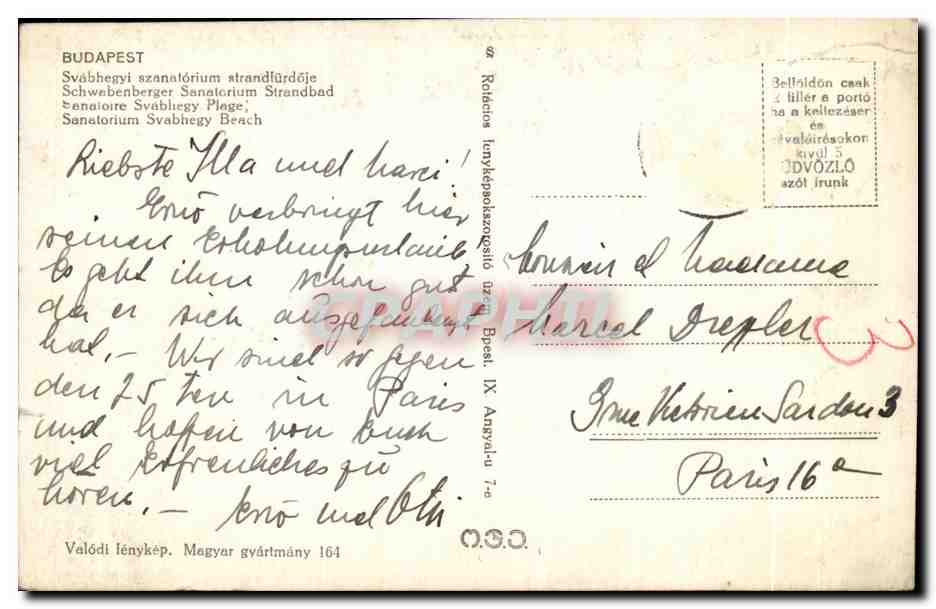 BUDAPEST
Svábhegyi szanatórium strandfürdője
Schwabenberger Sanatorium Strandbad
Sanatoire Svábhegy Plage,
Sanatorium Svabhegy Beach
Liebste Illa und
Ernö verbringt hier
seinen Erholungsurlaub!
Es geht ihm schon gut
da er sich ausgefaulenzt
hat, - Wir sind so gegen
den 25 ten in Paris
und hoffen von Euch
viel Erfreuliches zu
hören. - Ernö und
Valódi fénykép. Magyar gyártmány 164
Rotációs fényképsokszorosító üzem, Bpest. IX Angyal-u 7-e
Belföldön csak
fillér a portó
ha a keltezésen
és
névaláírásokon
kívül 5
ÜDVÖZLŐ
szót írunk
Monsieur et Madame
Marcel Drexler
Victorien Sardou 3
Paris 16e
3
CPAPHTI